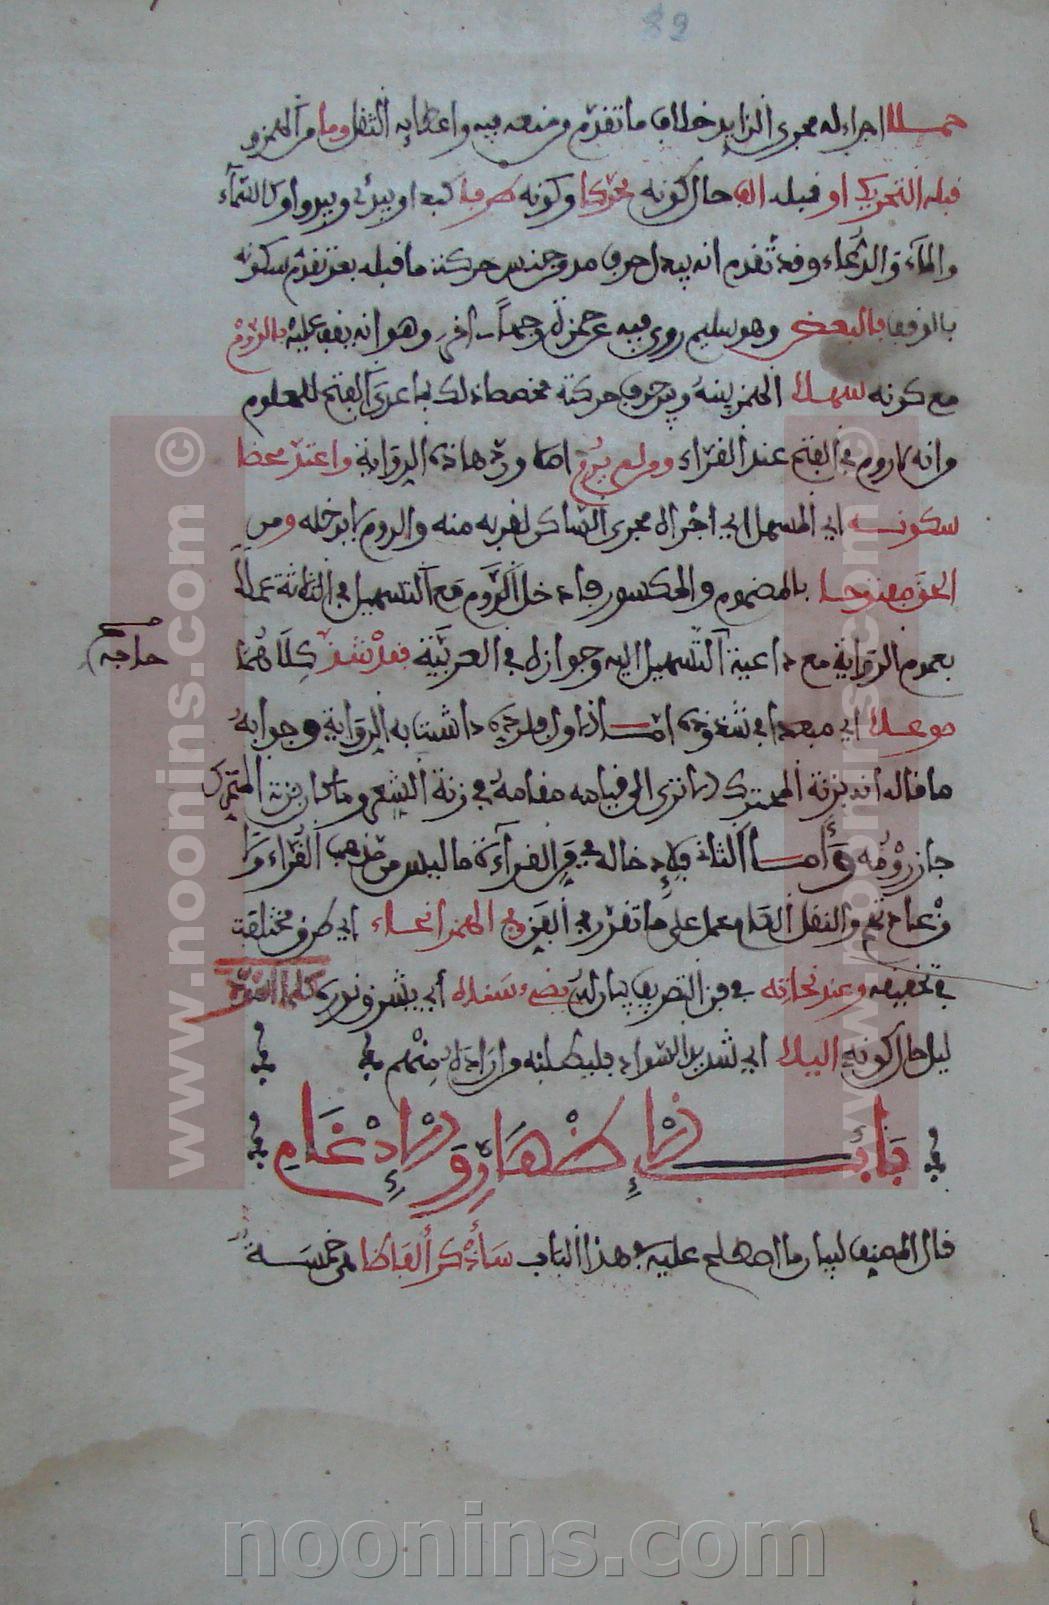 89
حملا اجراء له مجرى الزايد خلاف ما تقدم من منعه فيه واعطايه النقل وما من الهمز و
قبله التحريك او قبله الف حال كونه محركا وكونه طرفا كبدا ويبدئ ويبدوا وكالسماء
والماء والدعاء وقد تقدم انه يبدل حرف مد من جنس حركة ما قبله بعد تقدم سكونه
بالوقف فالبعض وهو سليم روى فيه عن حمزة وجها اخر وهو انه يقف عليه بالروم
مع كونه سهلا الهمز بينه وبين حرف حركته مخصصا ذلك بما عدى الفتح للمعلوم
وانه لا روم في الفتح عند القراء ومن لم يرم اصلا ورد هاذه الرواية واعتد محضا
سكونه اي المسهل اي اجراه مجرى الساكن لقربه منه والروم لا يدخله ومن
الحق مفتوحا بالمضموم والمكسور فادخل الروم مع التسهيل في الثلاثة عملا
بعموم الرواية مع داعية التسهيل اليه وجوازه في العربية فقد شذ كلاهما
موغلا اي مبعدا في شذوذه امـا الاول فلرده ما ثبتت به الرواية وجوابه
ما قاله انه بزنة المحرك الا ترى الى قيامه مقامه في زنة الشعر وما كان بزنة المتحرك
جاز رومه وأما الثاني فلإدخاله في القرآن ما ليس من مذهب القراء ولا
من عادتهم والنقل العام عمل على ما تقرر في الفن وفي الهمز انحاء اي طرق مختلفة
في تخفيفه وعند نحاته في فن التصريف بيان له يضيء سناه اي يشرق نوره كلما اسود
ليل حال كونه اليلا اي شديد السواد فليطلبه من اراده منهم
بَابُ الإِظْهَارِ وَالإِدْغَامِ
قال المصنف لبيان ما اصطلح عليه في هذا الباب سَأَذْكُرُ أَلفَاظًا هي خمسة